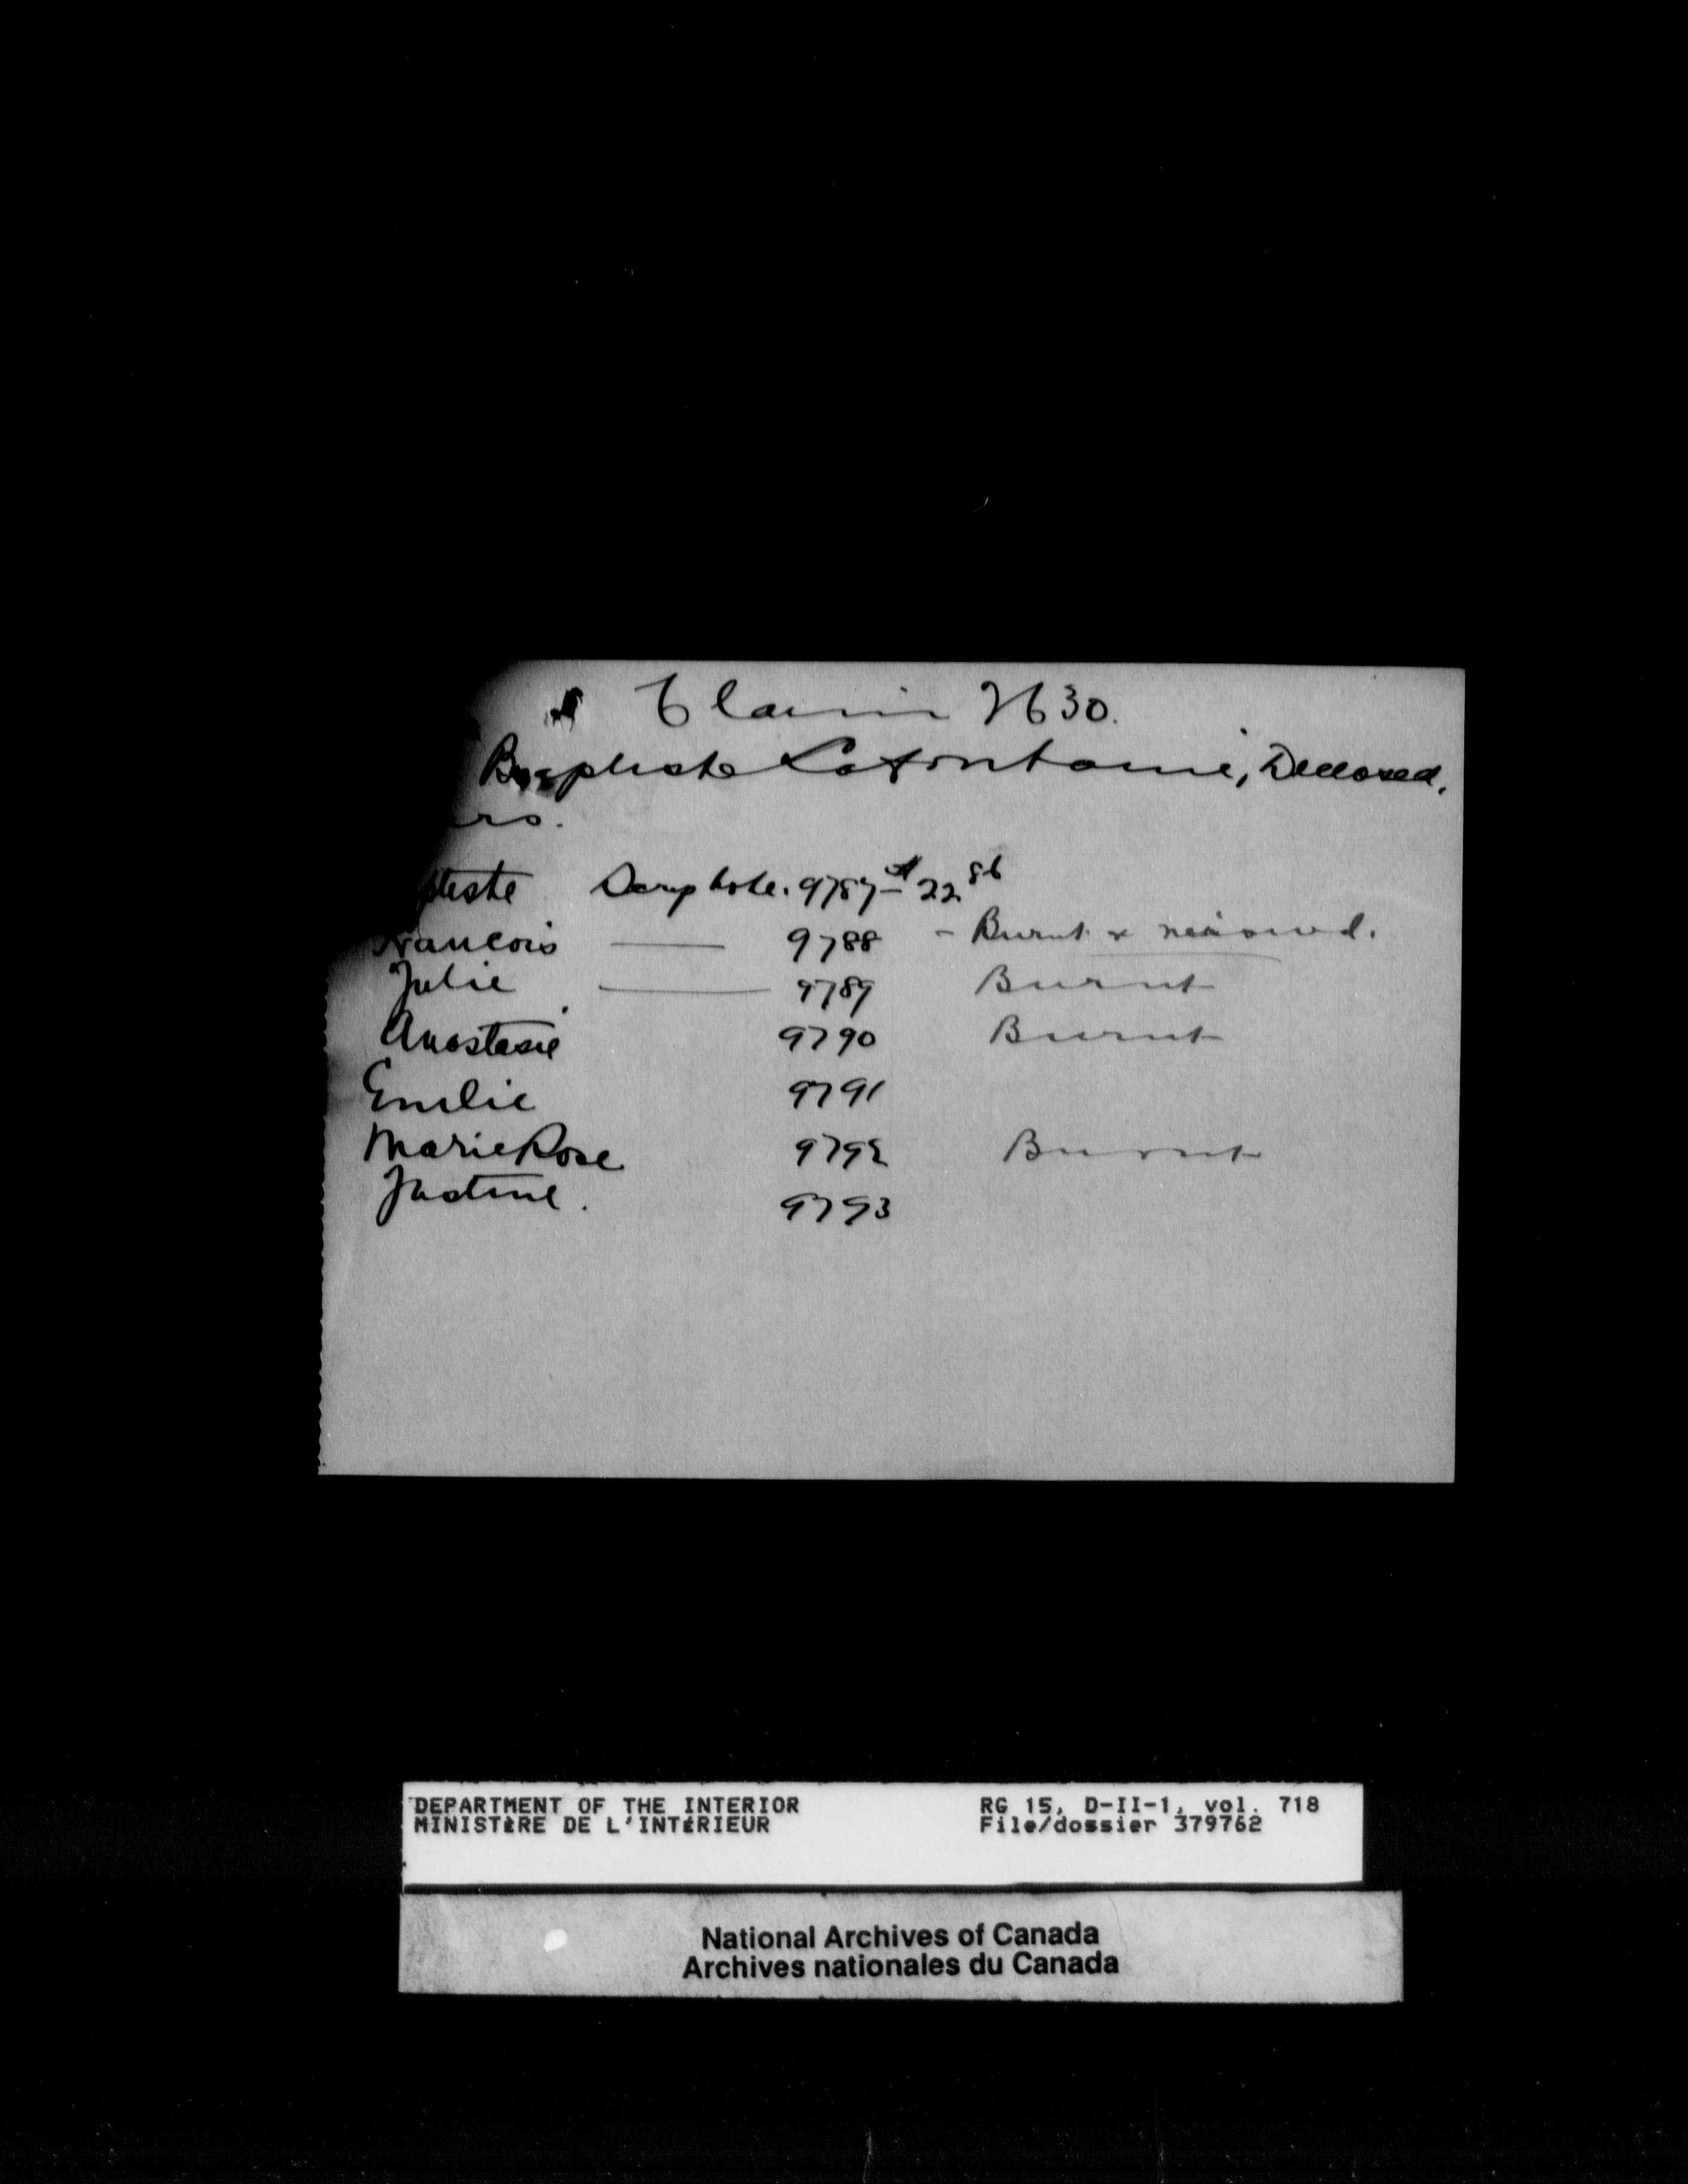 Claim 2630.
Baptiste Lafontaine, Deceased.
ers.
ptiste Scrip Note. 9787 - $22 86
Francois — 9788 - Burnt & reissued.
Julie — 9789 Burnt
Anastasie 9790 Burnt
Emilie 9791
Marie Rose 9792 Burnt
Justine. 9793
DEPARTMENT OF THE INTERIOR RG 15, D-II-1, vol. 718
MINISTÈRE DE L'INTÉRIEUR File/dossier 379762
National Archives of Canada
Archives nationales du Canada